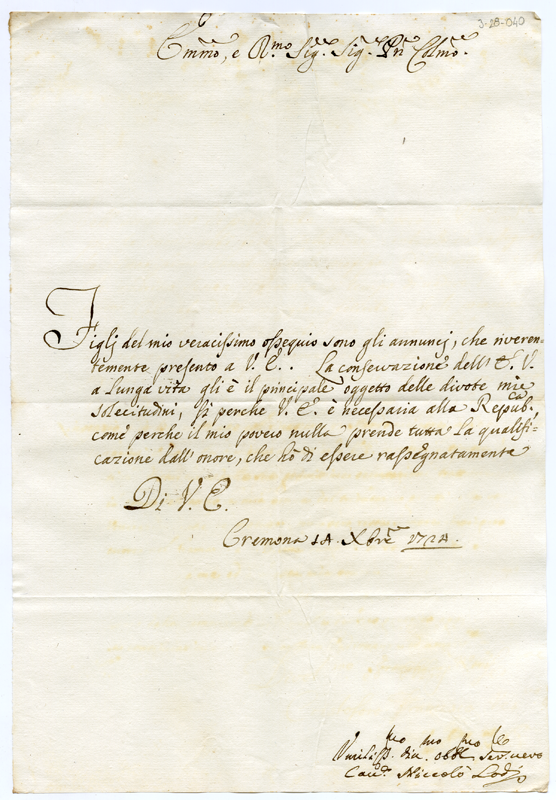 J-28-040
Emmo, e Rmo Sigr. Sigr. Prn Colmo.
Figlj del mio veracissimo ossequio sono gli annunzj, che riveren-
temente presento a V. E.. La conservazione dell' E. V.
a lunga vita gli è il principale oggetto delle divote mie
solecitudini, sì perche V. E. è necessaria alla Repubca,
come perche il mio povero nulla prende tutta la qualifi-
cazione dall' onore, che hò di essere rassegnatamente
Di V. E.
Cremona 14. Xbre 1724.
Umilissmo. divmo. obblmo Servre vero
Cavr. Niccolò Lodi